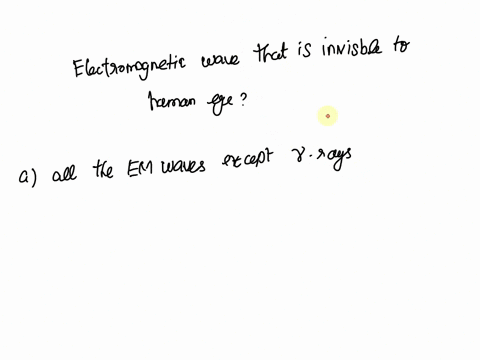 Electromagnetic wave that is invisble to
human eye?
a) all the EM waves except γ-rays